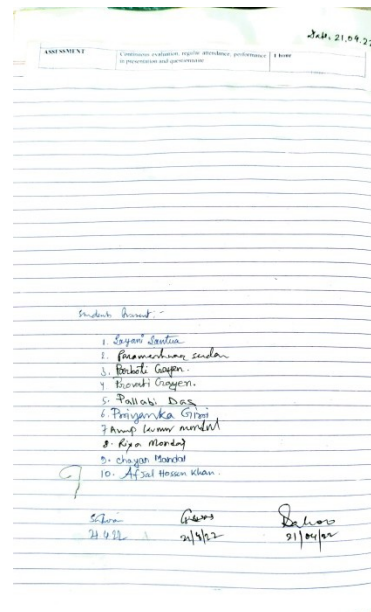 Date. 21.04.22
ASSESSMENT Continuous evaluation, regular attendance, performance 1 hour
in presentation and questionnaire
Students Present:-
1. Sayani Santra
2. Parameshwar
3. Parboti Gayen.
4 Provati Gayen.
5. Pallabi Das
6. Priyanka Giri
7 Anup kumar mondal
8. Riya Mondal
9. chayan Mandal
10. Afsal Hossen Khan.
21.4.22 21/4/22 21/04/22